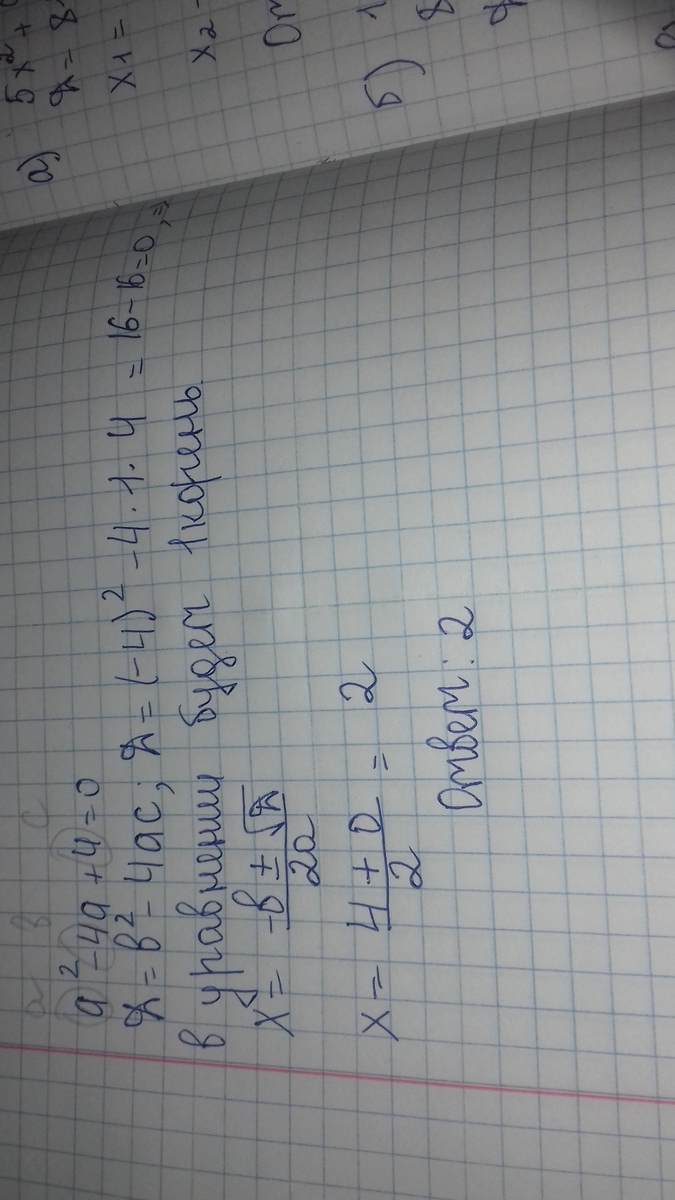 a b c
a² - 4a + 4 = 0
D = b² - 4ac; D = (-4)² - 4·1·4 = 16 - 16 = 0, ⇒
в уравнении будет 1 корень
x = (-b ± √D)/2a
x = (4 + 0)/2 = 2
Ответ: 2
а) 5x² +
D = 8
x₁ =
x₂
От
б) 8
D